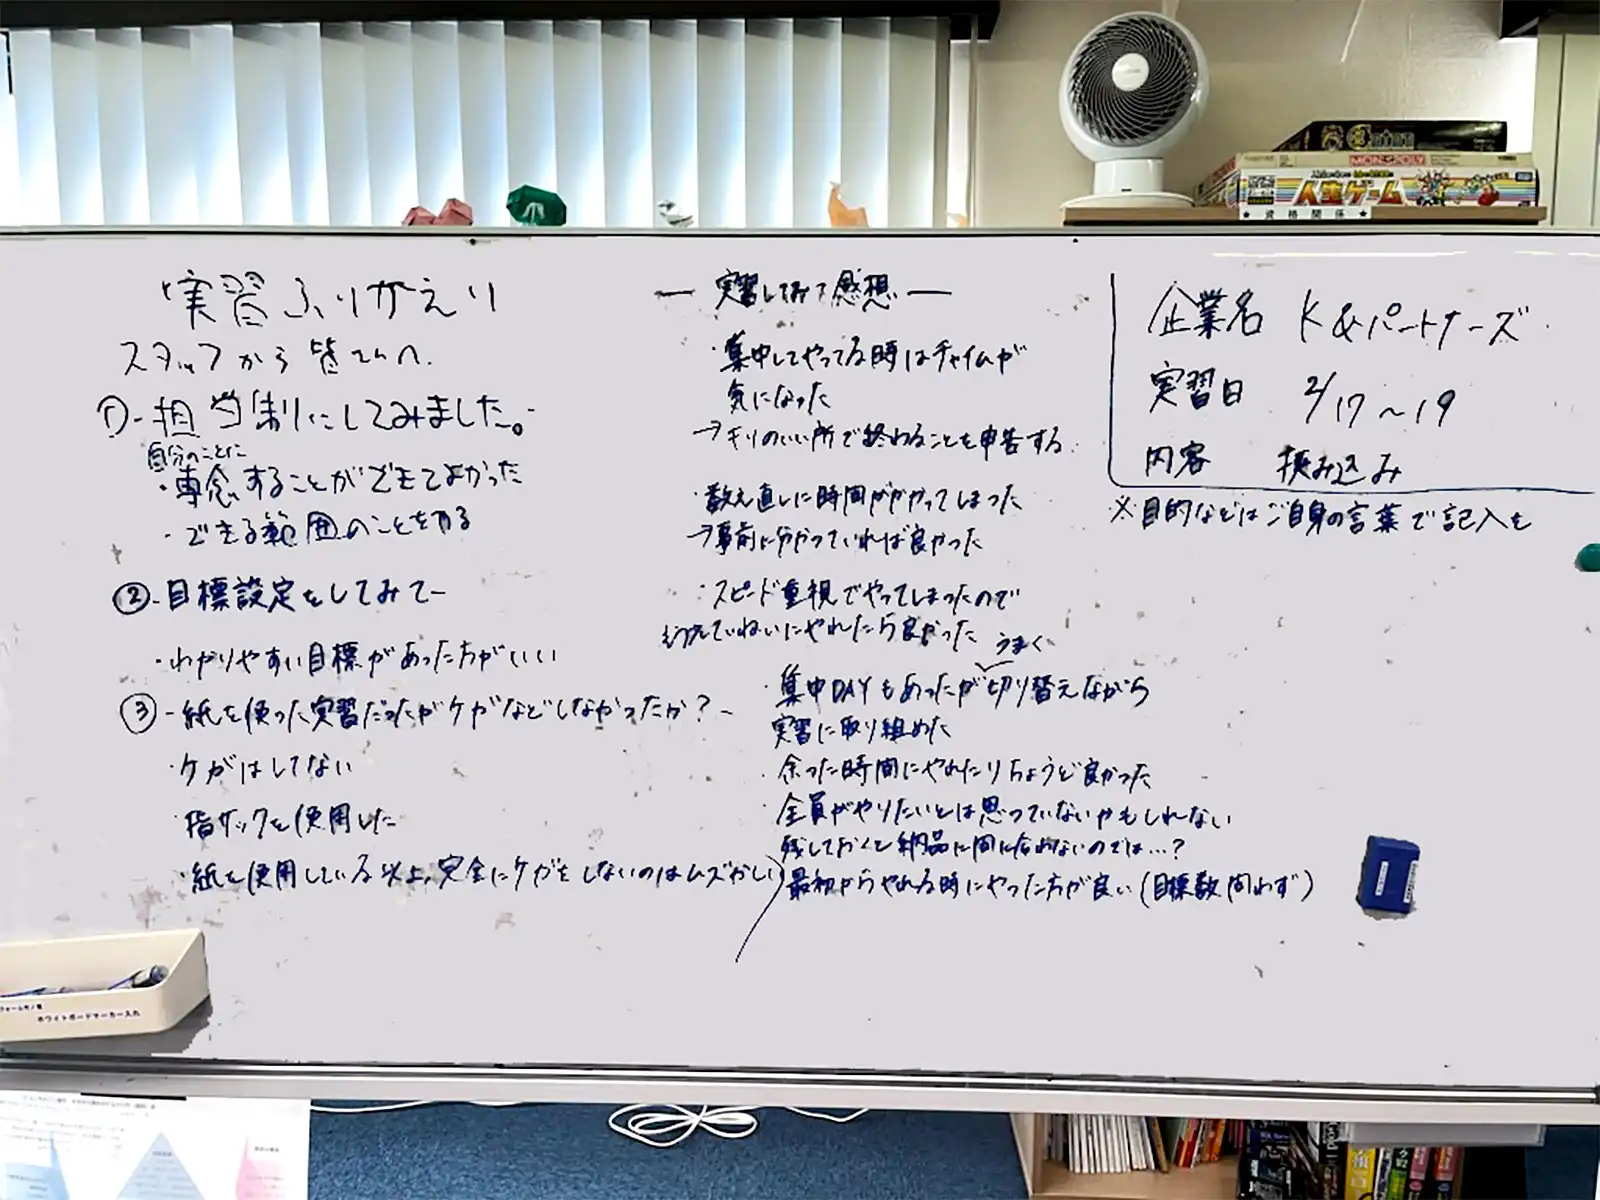 実習ふりかえり
スタッフから皆さんへ
①-担当制にしてみました。-
自分のことに
・専念することができてよかった
・できる範囲のことをやる
②-目標設定をしてみて-
・わかりやすい目標があった方がいい
③-紙を使った実習だったがケガなどしなかったか?-
・ケガはしてない
・指サックを使用した
・紙を使用している以上、完全にケガをしないのはムズかしい
― 実習してみて感想 ―
・集中してやってる時はチャイムが
気になった
→キリのいい所で終わることを申告する
・数え直しに時間がかかってしまった
→事前に分かっていれば良かった
・スピード重視でやってしまったので
ていねいにやれたら良かった
うまく
・集中DAYもあったが切り替えながら
実習に取り組めた
・余った時間にやれたりちょうど良かった
・全員がやりたいとは思っていないかもしれない
残しておくと納品に間に合わないのでは…?
最初からやれる時にやった方が良い(目標数問わず)
企業名 K&パートナーズ
実習日 2/17~19
内容 挟み込み
※目的などはご自身の言葉で記入を
MONOPOLY
人生ゲーム
★資格関係★
ホワイトボードマーカー入れ